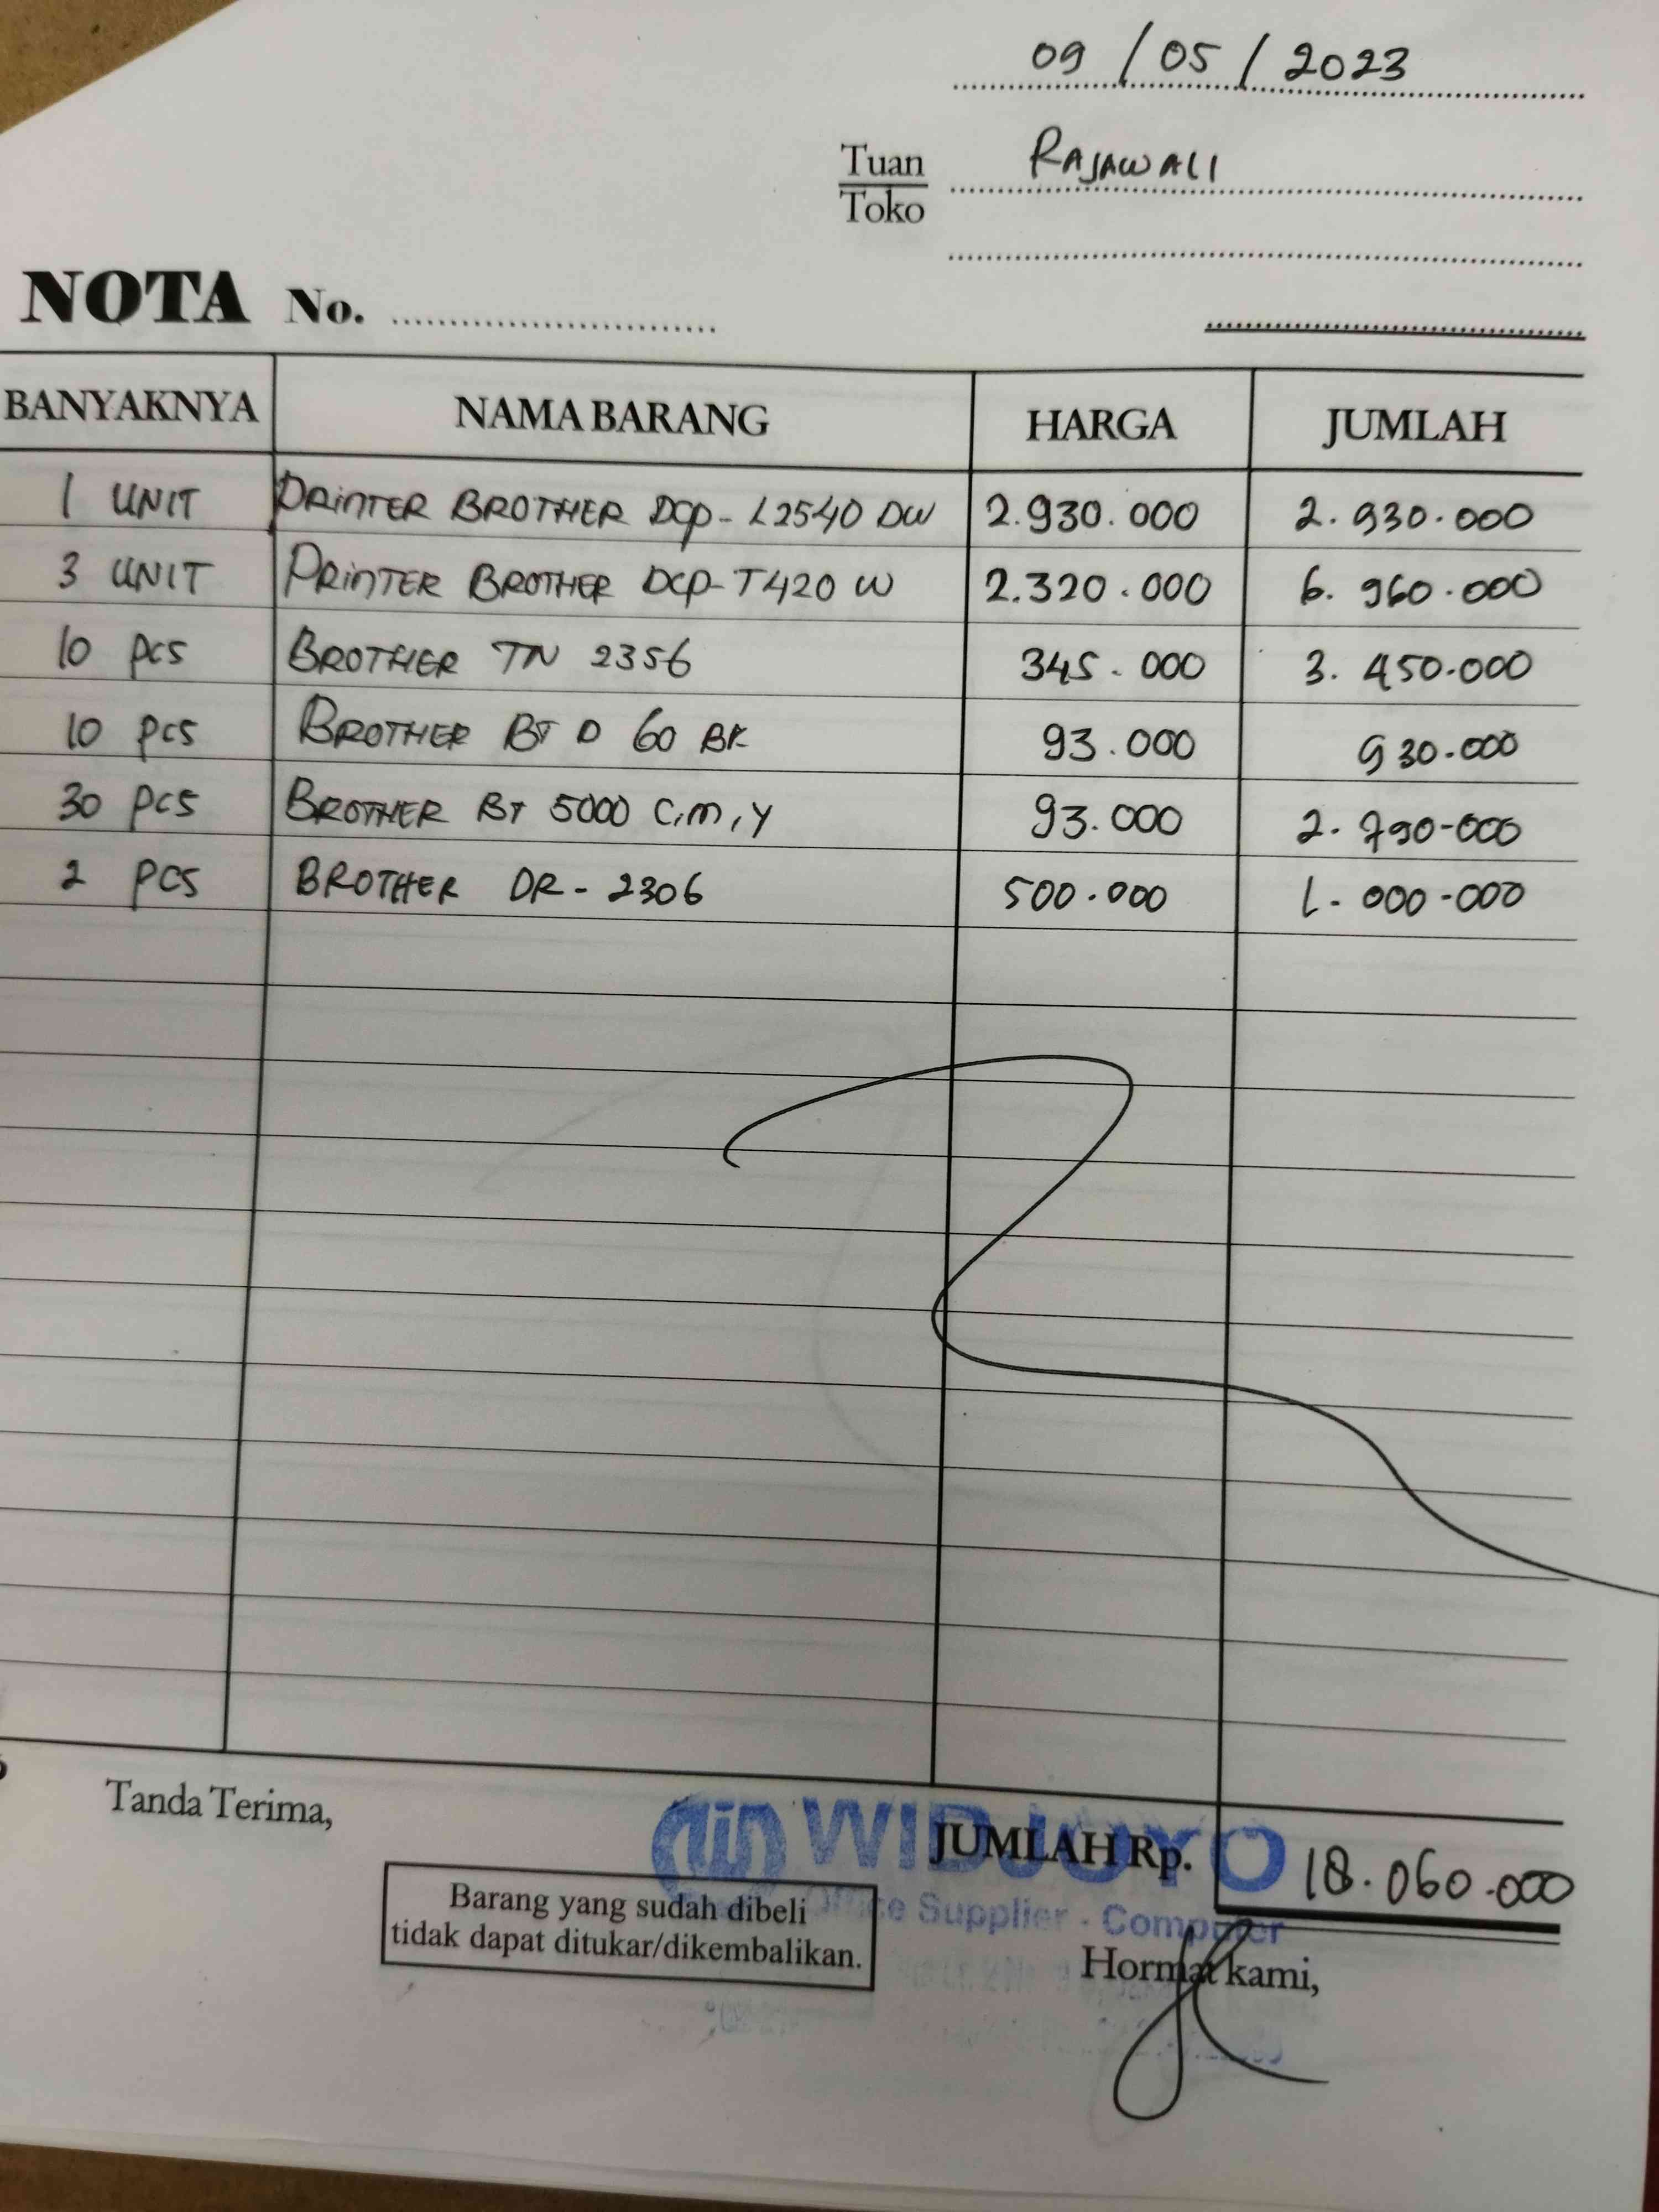 09 / 05 / 2023
Tuan RAJAWALI
Toko
NOTA No.
BANYAKNYA NAMA BARANG HARGA JUMLAH
1 UNIT PRINTER BROTHER DCP- L2540 DW 2.930.000 2.930.000
3 UNIT PRINTER BROTHER DCP-T420 W 2.320.000 6.960.000
10 PCS BROTHER TN 2356 345.000 3.450.000
10 PCS BROTHER BT D 60 BK 93.000 930.000
30 PCS BROTHER BT 5000 C,M,Y 93.000 2.790-000
2 PCS BROTHER DR - 2306 500.000 1.000-000
Tanda Terima,
WIDJOYO
JUMLAH Rp. 18.060.000
Office Supplier - Computer
Barang yang sudah dibeli
tidak dapat ditukar/dikembalikan.
Hormat kami,